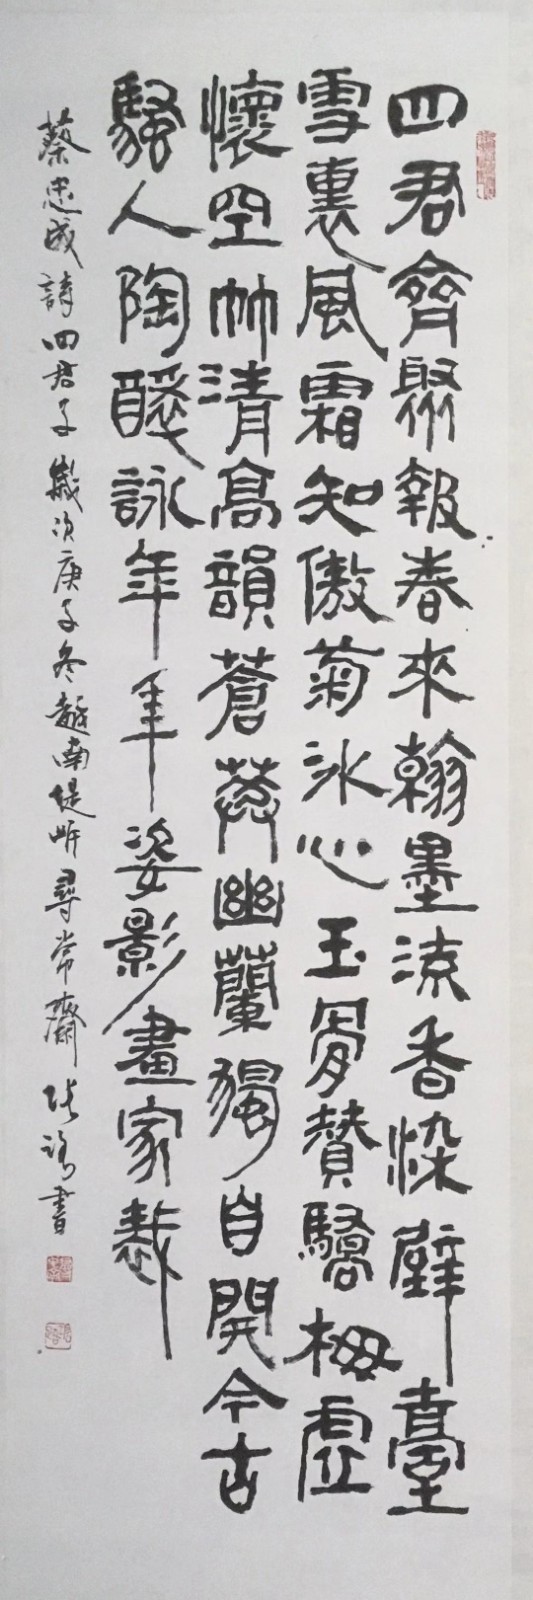 四君齊聚報春來翰墨流香染壁臺
雪裏風霜知傲菊冰心玉骨贊驕梅虛
懷空竹清高韻蒼蕊幽蘭獨自開今古
騷人陶醉詠年年姿影畫家裁
蔡忠成詩四君子歲次庚子冬越南堤岸尋常齋張 書